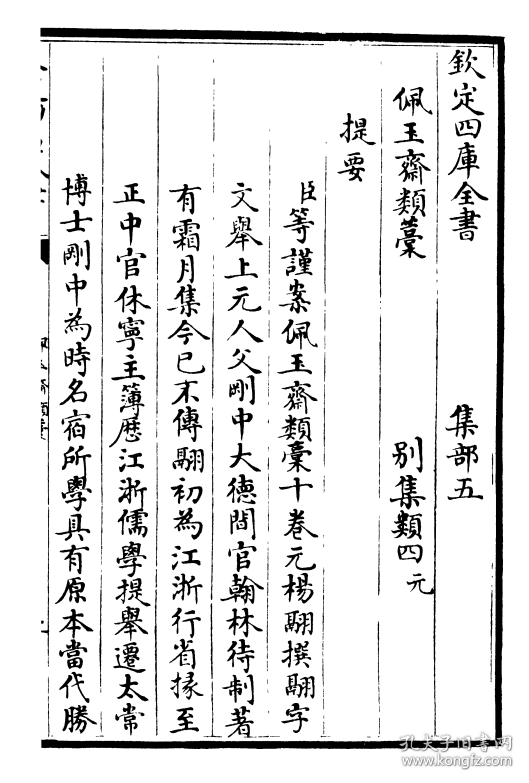 欽定四庫全書　集部五
佩玉齋類藁　別集類四元
提要
臣等謹案佩玉齋類藁十卷元楊翮撰翮字
文舉上元人父剛中大德間官翰林待制著
有霜月集今已不傳翮初為江浙行省掾至
正中官休寧主簿歷江浙儒學提舉遷太常
博士剛中為時名宿所學具有原本當代勝
孔夫子旧书网
kongfz.com